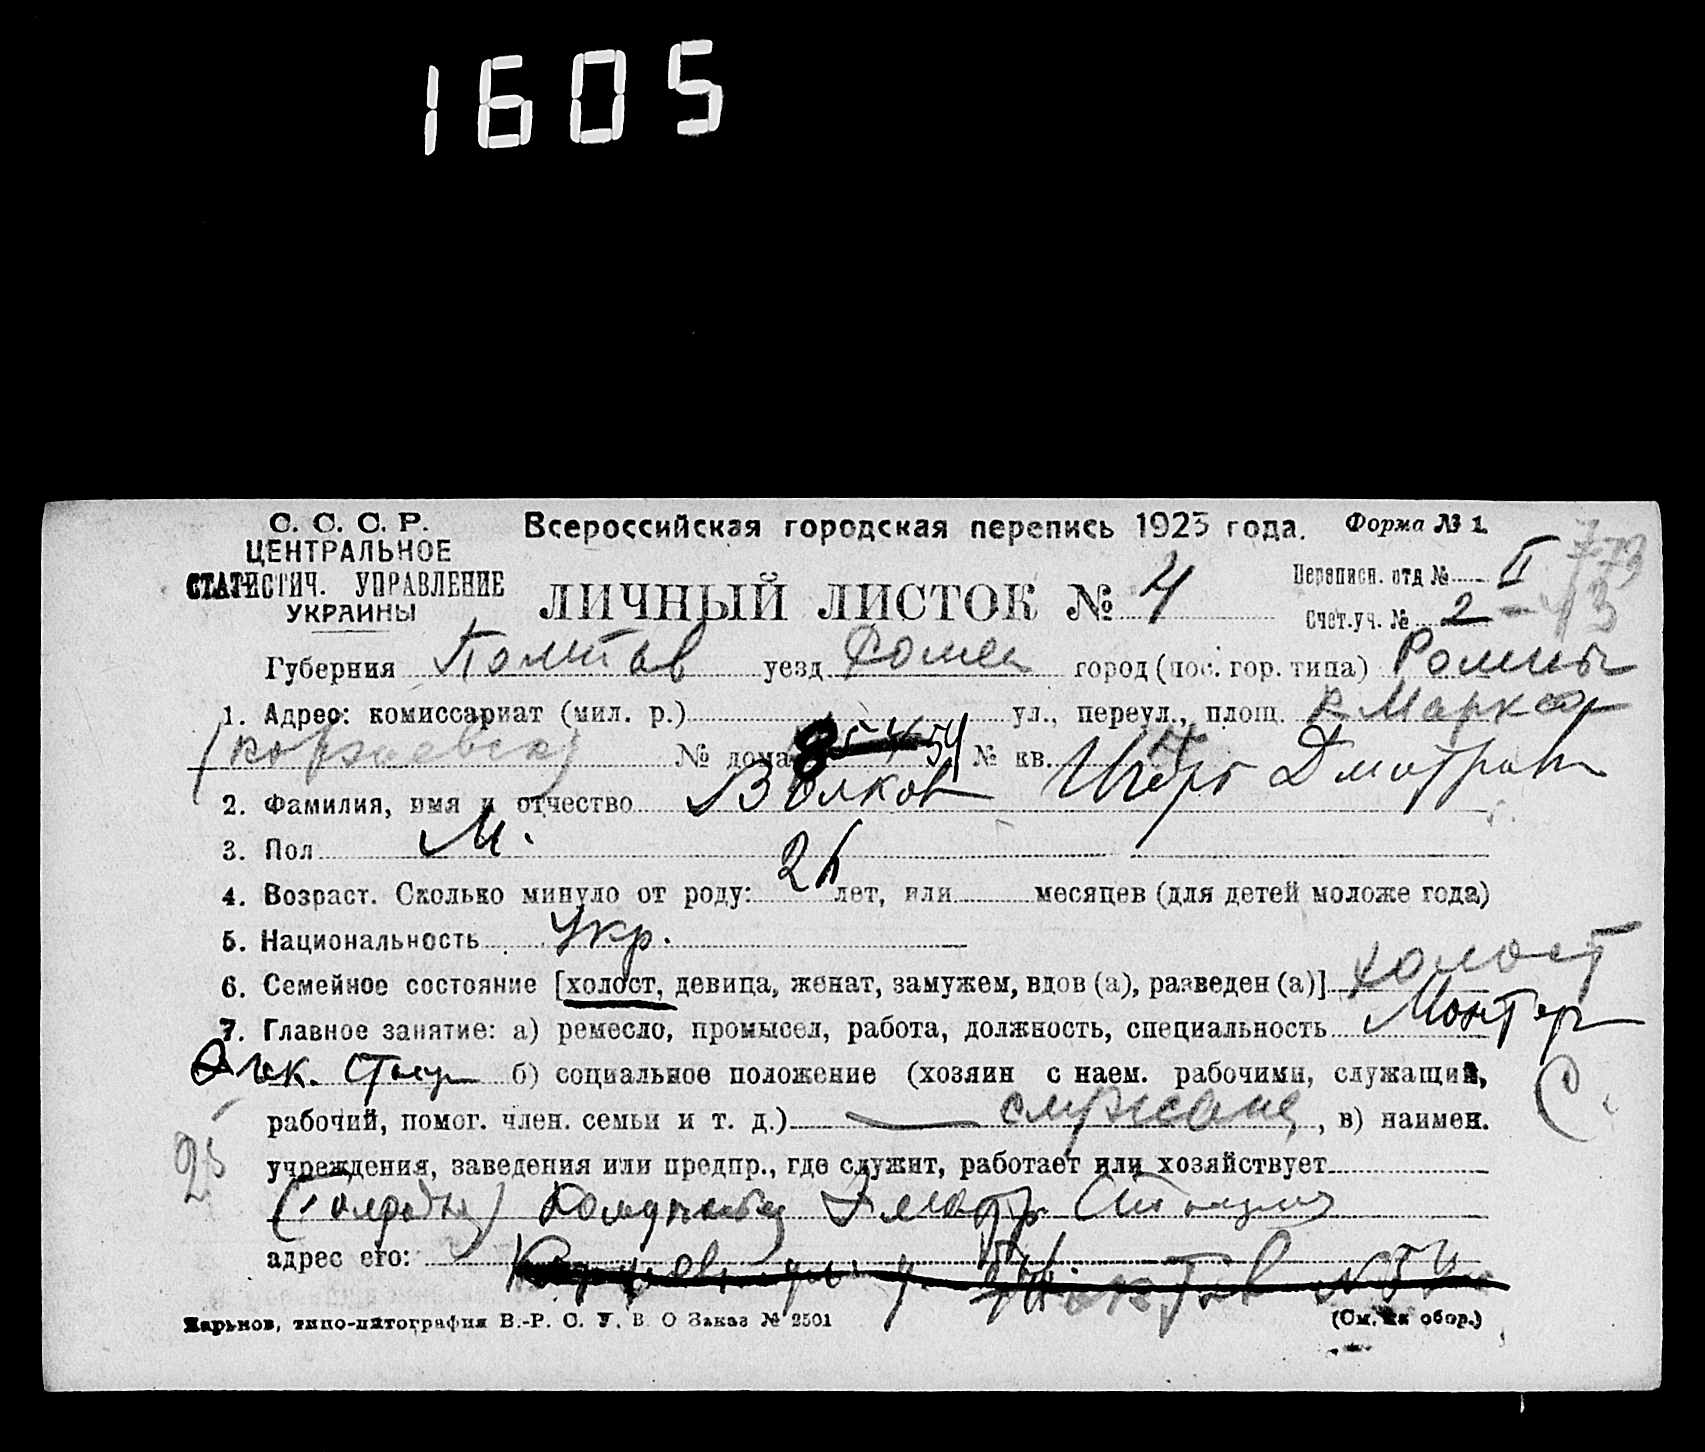 1605
С. С. С. Р.
ЦЕНТРАЛЬНОЕ
СТАТИСТИЧ. УПРАВЛЕНИЕ
УКРАИНЫ
Всероссийская городская перепись 1923 года.
Форма № 1.
ЛИЧНЫЙ ЛИСТОК № 4
Переписн. отд № II
Счет. уч. № 2
Губерния Полтав уезд Ромен город (пос. гор. типа) Ромны
1. Адрес: комиссариат (мил. р.) ул., переул., площ. К. Маркса
№ дома 54 № кв.
2. Фамилия, имя и отчество Волков Игорь Дмитров
3. Пол М.
4. Возраст. Сколько минуло от роду: лет, или месяцев (для детей моложе года)
5. Национальность Укр.
6. Семейное состояние [холост, девица, женат, замужем, вдов (а), разведен (а)] холост
7. Главное занятие: а) ремесло, промысел, работа, должность, специальность Монтер
б) социальное положение (хозяин с наем. рабочими, служащий, С
рабочий, помог. член. семьи и т. д.) служащ, в) наимен.
25
учреждения, заведения или предпр., где служит, работает или хозяйствует
адрес его:
Харьков, типо-литография В.-Р. С. У. В. О Заказ № 2501
(См. на обор.)